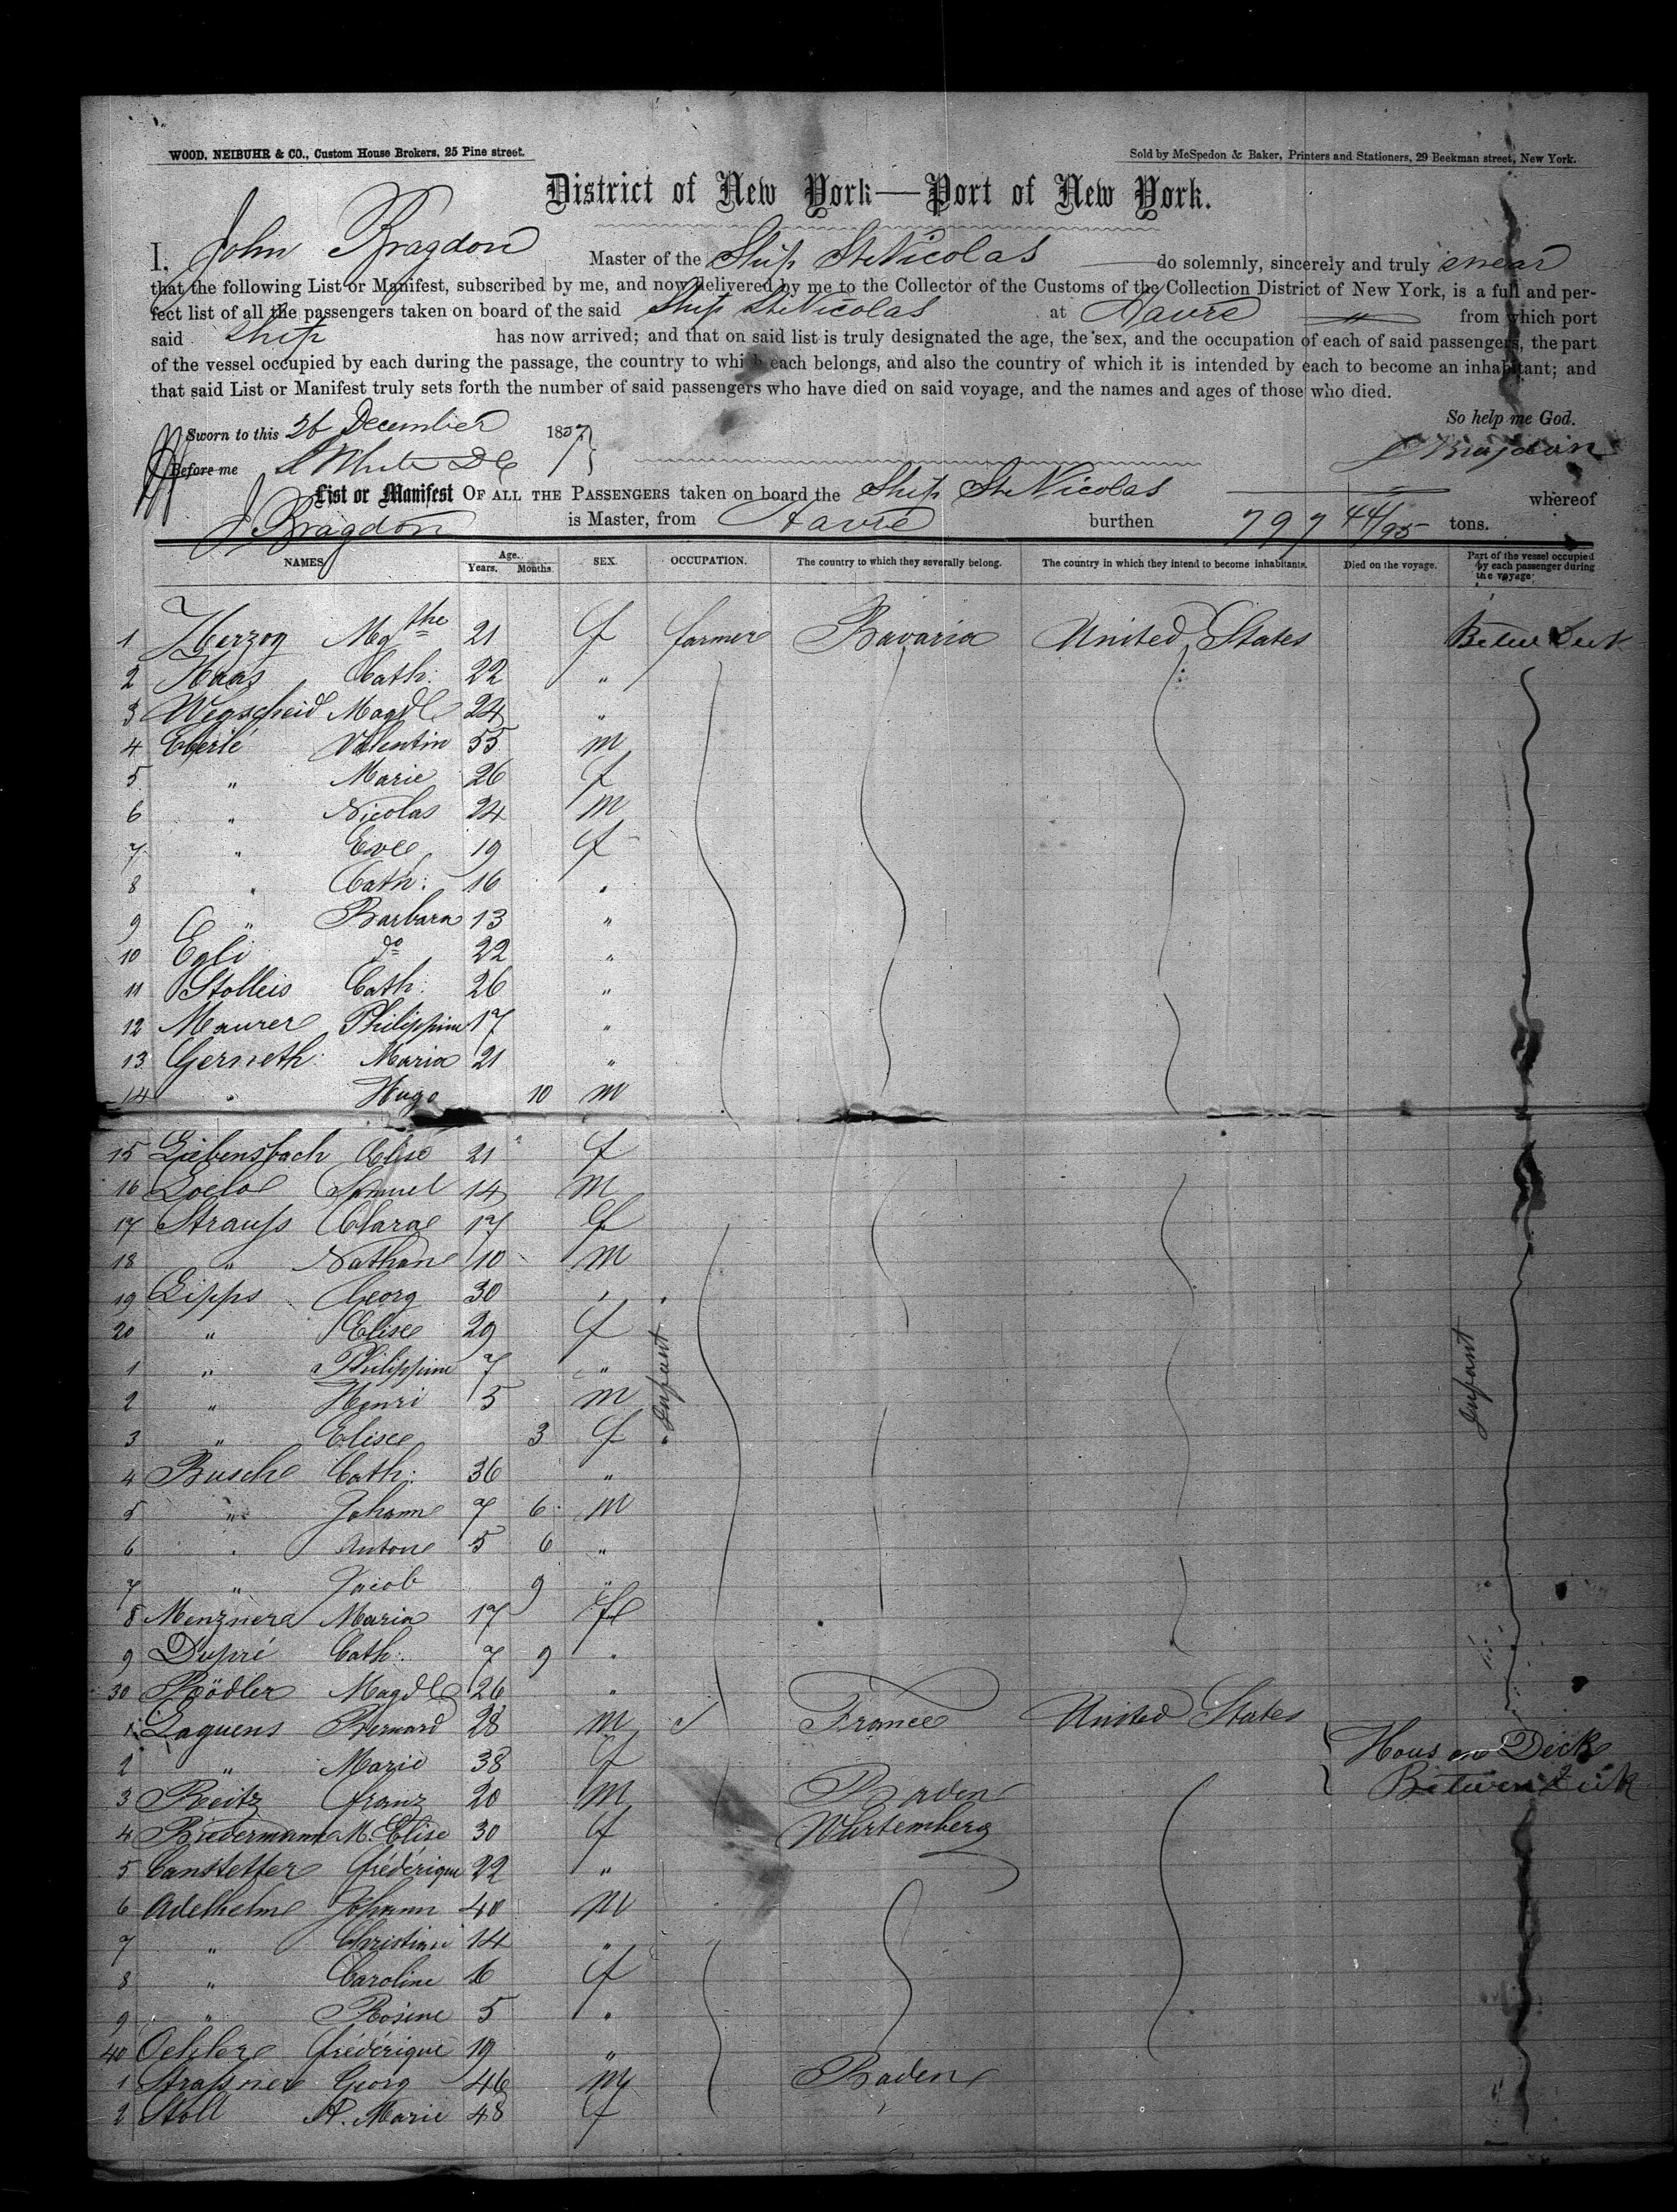 WOOD, NEIBUHR & CO., Custom House Brokers, 25 Pine street.
Sold by McSpedon & Baker, Printers and Stationers, 29 Beekman street, New York.
District of New York—Port of New York.
I, John Bragdon Master of the Ship St Nicolas do solemnly, sincerely and truly swear
that the following List or Manifest, subscribed by me, and now delivered by me to the Collector of the Customs of the Collection District of New York, is a full and per-
fect list of all the passengers taken on board of the said Ship St Nicolas at Havre from which port
said Ship has now arrived; and that on said list is truly designated the age, the sex, and the occupation of each of said passengers, the part
of the vessel occupied by each during the passage, the country to which each belongs, and also the country of which it is intended by each to become an inhabitant; and
that said List or Manifest truly sets forth the number of said passengers who have died on said voyage, and the names and ages of those who died.
So help me God.
Sworn to this 26 December 1857
J Bragdon
Before me White
List or Manifest OF ALL THE PASSENGERS taken on board the Ship St Nicolas whereof
J Bragdon is Master, from Havre burthen 797 44/95 tons.
NAMES Age. Years. Months. SEX. OCCUPATION. The country to which they severally belong. The country in which they intend to become inhabitants. Died on the voyage. Part of the vessel occupied by each passenger during the voyage.
1 Herzog Mgthe 21 f farmer Bavaria United States Betw Deck
2 Haas Cath: 22 "
3 Wegscheid Magdl 24 "
4 Eberlé Valentin 55 m
5 " Marie 26 f
6 " Nicolas 24 m
7 " Eve 19 f
8 " Cath: 16 "
9 " Barbara 13 "
10 Egli do 22 "
11 Stolleis Cath: 26 "
12 Maurer Philippine 17 "
13 Gerneth: Maria 21 "
14 " Hugo 10 m
15 Liebensbach Elise 21 f
16 Loeb Samuel 14 m
17 Strauss Clara 17 f
18 " Nathan 10 m
19 Lipps Georg 30 "
20 " Elise 29 f
1 " Philippine 7 "
2 " Henri 5 m
3 " Elise 3 f " Infant Infant
4 Busch Cath: 36 "
5 " Johann 7 6 m
6 " Anton 5 6 "
7 " Jacob 9 "
8 Menzner Maria 17 f
9 Dupré Cath: 7 9 "
30 Rödler Magdl 26 "
1 Laguens Bernard 28 m France United States
2 " Marie 38 f Hous on Deck
3 Reitz Franz 20 m Baden Between Deck
4 Biedermann M. Elise 30 f Wurtemberg
5 Canstetter Frédérique 22 "
6 Adelhelm Johann 40 m
7 " Christian 14 "
8 " Caroline 16 f
9 " Rosine 5 "
40 Oehler Frédérique 19 "
1 Strassner Georg 46 m Baden
2 Stoll A. Marie 48 f